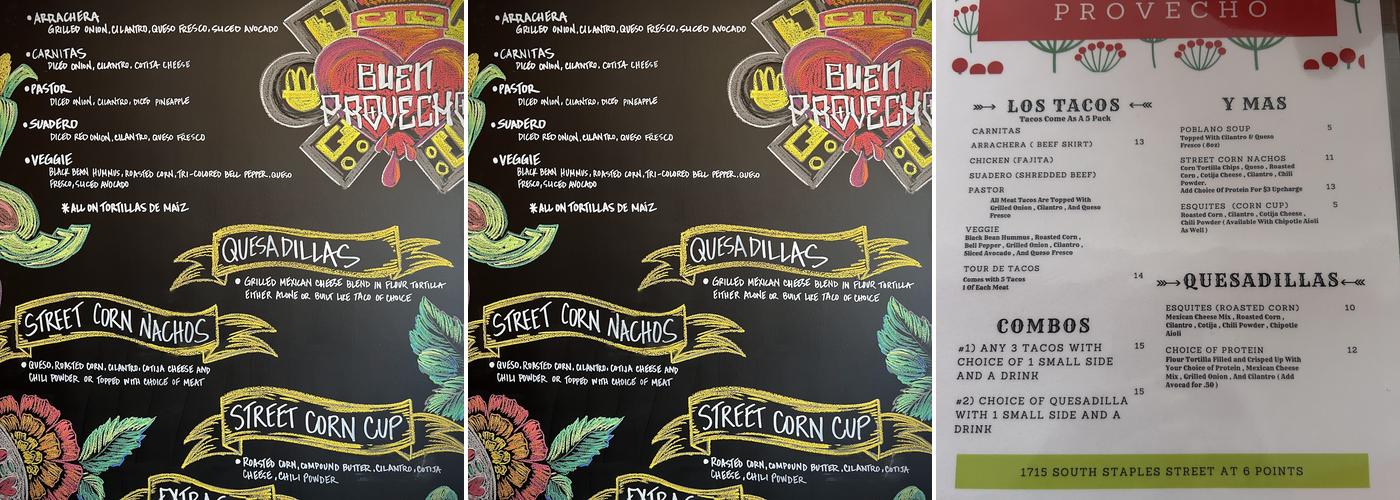 • ARRACHERA
GRILLED ONION, CILANTRO, QUESO FRESCO, SLICED AVOCADO
• CARNITAS
DICED ONION, CILANTRO, COTIJA CHEESE
• PASTOR
DICED ONION, CILANTRO, DICED PINEAPPLE
• SUADERO
DICED RED ONION, CILANTRO, QUESO FRESCO
• VEGGIE
BLACK BEAN HUMMUS, ROASTED CORN, TRI-COLORED BELL PEPPER, QUESO
FRESCO, SLICED AVOCADO
* ALL ON TORTILLAS DE MAIZ
BUEN
PROVECHO
QUESADILLAS
• GRILLED MEXICAN CHEESE BLEND IN FLOUR TORTILLA
EITHER ALONE OR BUILT LIKE TACO OF CHOICE
STREET CORN NACHOS
• QUESO, ROASTED CORN, CILANTRO, COTIJA CHEESE AND
CHILI POWDER OR TOPPED WITH CHOICE OF MEAT
STREET CORN CUP
• ROASTED CORN, COMPOUND BUTTER, CILANTRO, COTIJA
CHEESE, CHILI POWDER
EXTRAS
• ARRACHERA
GRILLED ONION, CILANTRO, QUESO FRESCO, SLICED AVOCADO
• CARNITAS
DICED ONION, CILANTRO, COTIJA CHEESE
• PASTOR
DICED ONION, CILANTRO, DICED PINEAPPLE
• SUADERO
DICED RED ONION, CILANTRO, QUESO FRESCO
• VEGGIE
BLACK BEAN HUMMUS, ROASTED CORN, TRI-COLORED BELL PEPPER, QUESO
FRESCO, SLICED AVOCADO
* ALL ON TORTILLAS DE MAIZ
BUEN
PROVECHO
QUESADILLAS
• GRILLED MEXICAN CHEESE BLEND IN FLOUR TORTILLA
EITHER ALONE OR BUILT LIKE TACO OF CHOICE
STREET CORN NACHOS
• QUESO, ROASTED CORN, CILANTRO, COTIJA CHEESE AND
CHILI POWDER OR TOPPED WITH CHOICE OF MEAT
STREET CORN CUP
• ROASTED CORN, COMPOUND BUTTER, CILANTRO, COTIJA
CHEESE, CHILI POWDER
EXTRAS
PROVECHO
LOS TACOS
Tacos Come As A 5 Pack
CARNITAS
ARRACHERA ( BEEF SKIRT) 13
CHICKEN (FAJITA)
SUADERO (SHREDDED BEEF)
PASTOR
All Meat Tacos Are Topped With
Grilled Onion , Cilantro , And Queso
Fresco
VEGGIE
Black Bean Hummus , Roasted Corn ,
Bell Pepper , Grilled Onion , Cilantro ,
Sliced Avocado , And Queso Fresco
TOUR DE TACOS 14
Comes with 5 Tacos
1 Of Each Meat
COMBOS
#1) ANY 3 TACOS WITH 15
CHOICE OF 1 SMALL SIDE
AND A DRINK
#2) CHOICE OF QUESADILLA 15
WITH 1 SMALL SIDE AND A
DRINK
Y MAS
POBLANO SOUP 5
Topped With Cilantro & Queso
Fresco ( 8oz)
STREET CORN NACHOS 11
Corn Tortilla Chips , Queso , Roasted
Corn , Cotija Cheese , Cilantro , Chili
Powder.
Add Choice Of Protein For $3 Upcharge 13
ESQUITES (CORN CUP) 5
Roasted Corn , Cilantro , Cotija Cheese ,
Chili Powder ( Available With Chipotle Aioli
As Well )
QUESADILLAS
ESQUITES (ROASTED CORN) 10
Mexican Cheese Mix , Roasted Corn ,
Cilantro , Cotija , Chili Powder , Chipotle
Aioli
CHOICE OF PROTEIN 12
Flour Tortilla Filled and Crisped Up With
Your Choice of Protein , Mexican Cheese
Mix , Grilled Onion , And Cilantro ( Add
Avocad for .50 )
1715 SOUTH STAPLES STREET AT 6 POINTS